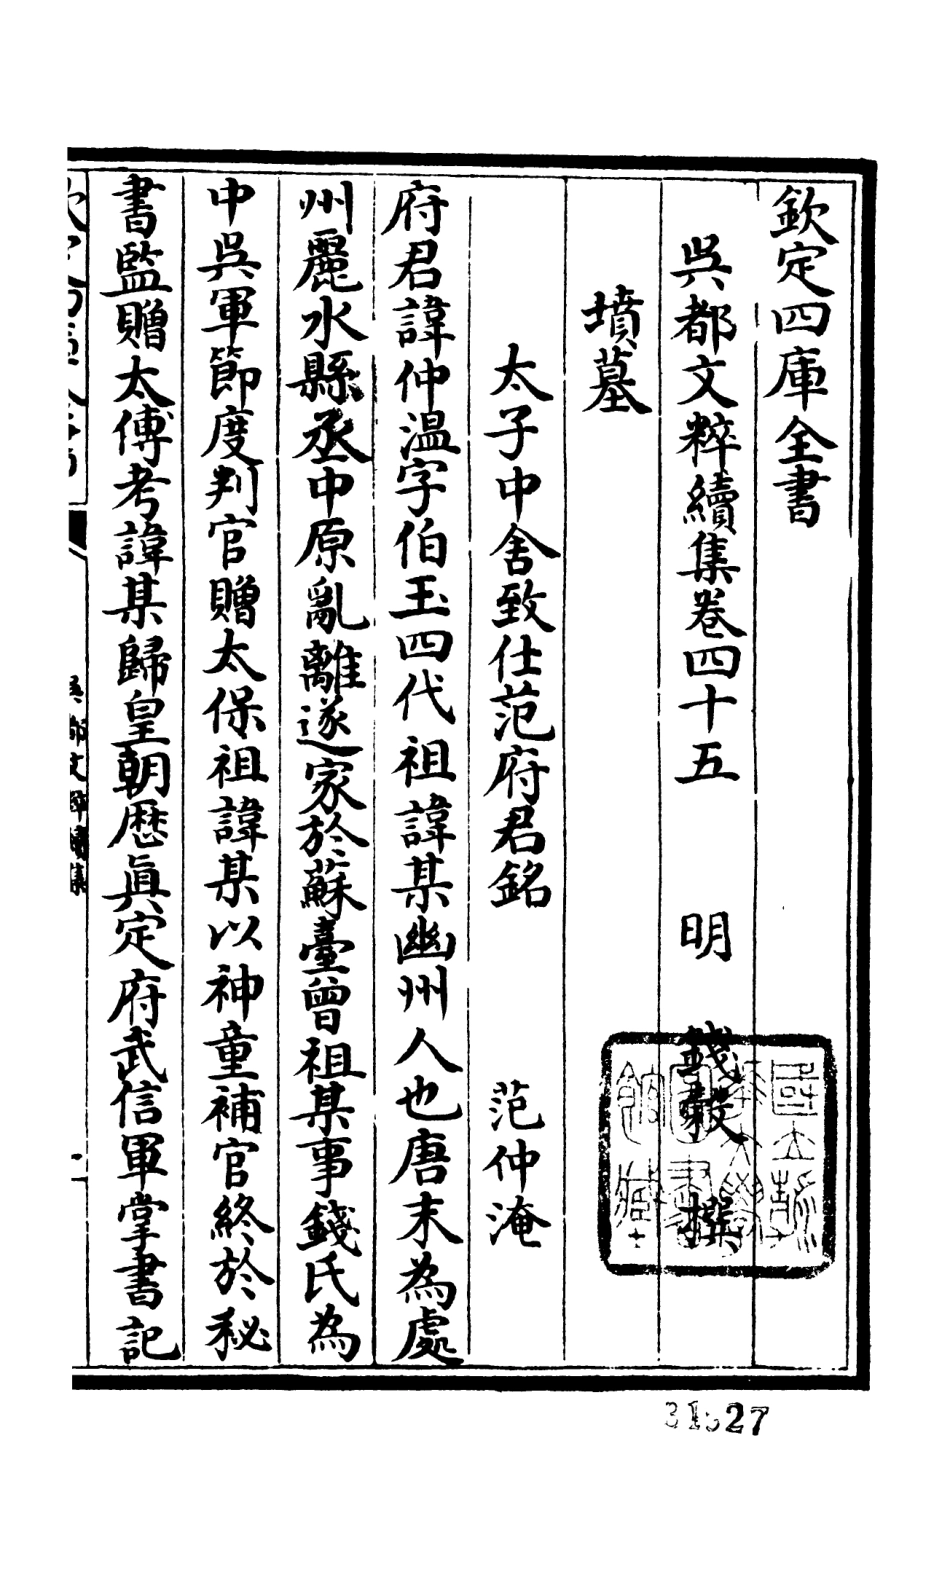 欽定四庫全書
吳都文粹續集卷四十五　明　錢穀　撰
墳墓
太子中舍致仕范府君銘　范仲淹
府君諱仲溫字伯玉四代祖諱某幽州人也唐末為處
州麗水縣丞中原亂離遂家於蘇臺曾祖某事錢氏為
中吳軍節度判官贈太保祖諱某以神童補官終於秘
書監贈太傅考諱某歸皇朝歴眞定府武信軍掌書記
吳都文粹續集